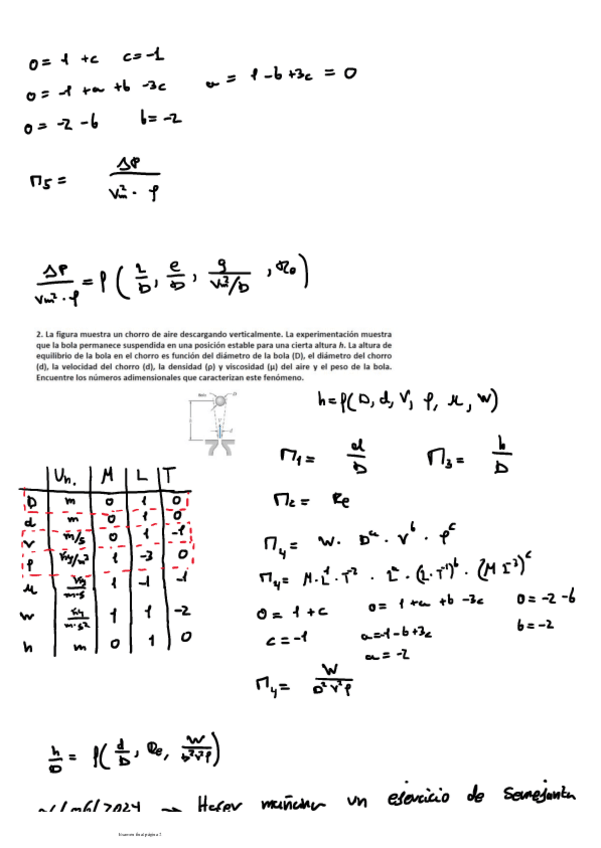 0 = 1 + c   c = -1
0 = -1 + a + b - 3c   a = 1 - b + 3c = 0
0 = -2 - b   b = -2
Π5 = ΔP / (Vm² · ρ)
ΔP / (Vm² · ρ) = f ( L/D, e/D, g / (Vm²/D), Re )
2. La figura muestra un chorro de aire descargando verticalmente. La experimentación muestra
que la bola permanece suspendida en una posición estable para una cierta altura h. La altura de
equilibrio de la bola en el chorro es función del diámetro de la bola (D), el diámetro del chorro
(d), la velocidad del chorro (d), la densidad (ρ) y viscosidad (μ) del aire y el peso de la bola.
Encuentre los números adimensionales que caracterizan este fenómeno.
h = f( D, d, V, ρ, μ, W)
Π1 = d/D   Π3 = h/D
Π2 = Re
Un. M L T
D m 0 1 0
d m 0 1 0
V m/s 0 1 -1
ρ kg/m³ 1 -3 0
μ kg/m·s 1 -1 -1
W 1 1 -2
h m 0 1 0
Π4 = W · Dᵃ · Vᵇ · ρᶜ
Π4 = M·L¹·T⁻² · Lᵃ · (L·T⁻¹)ᵇ · (M L⁻³)ᶜ
0 = 1 + c   0 = 1 + a + b - 3c   0 = -2 - b
c = -1   a = -1 - b + 3c   b = -2
a = -2
Π4 = W / (D² V² ρ)
h/D = f( d/D, Re, W / (D² V² ρ) )
/2024 → un ejercicio de